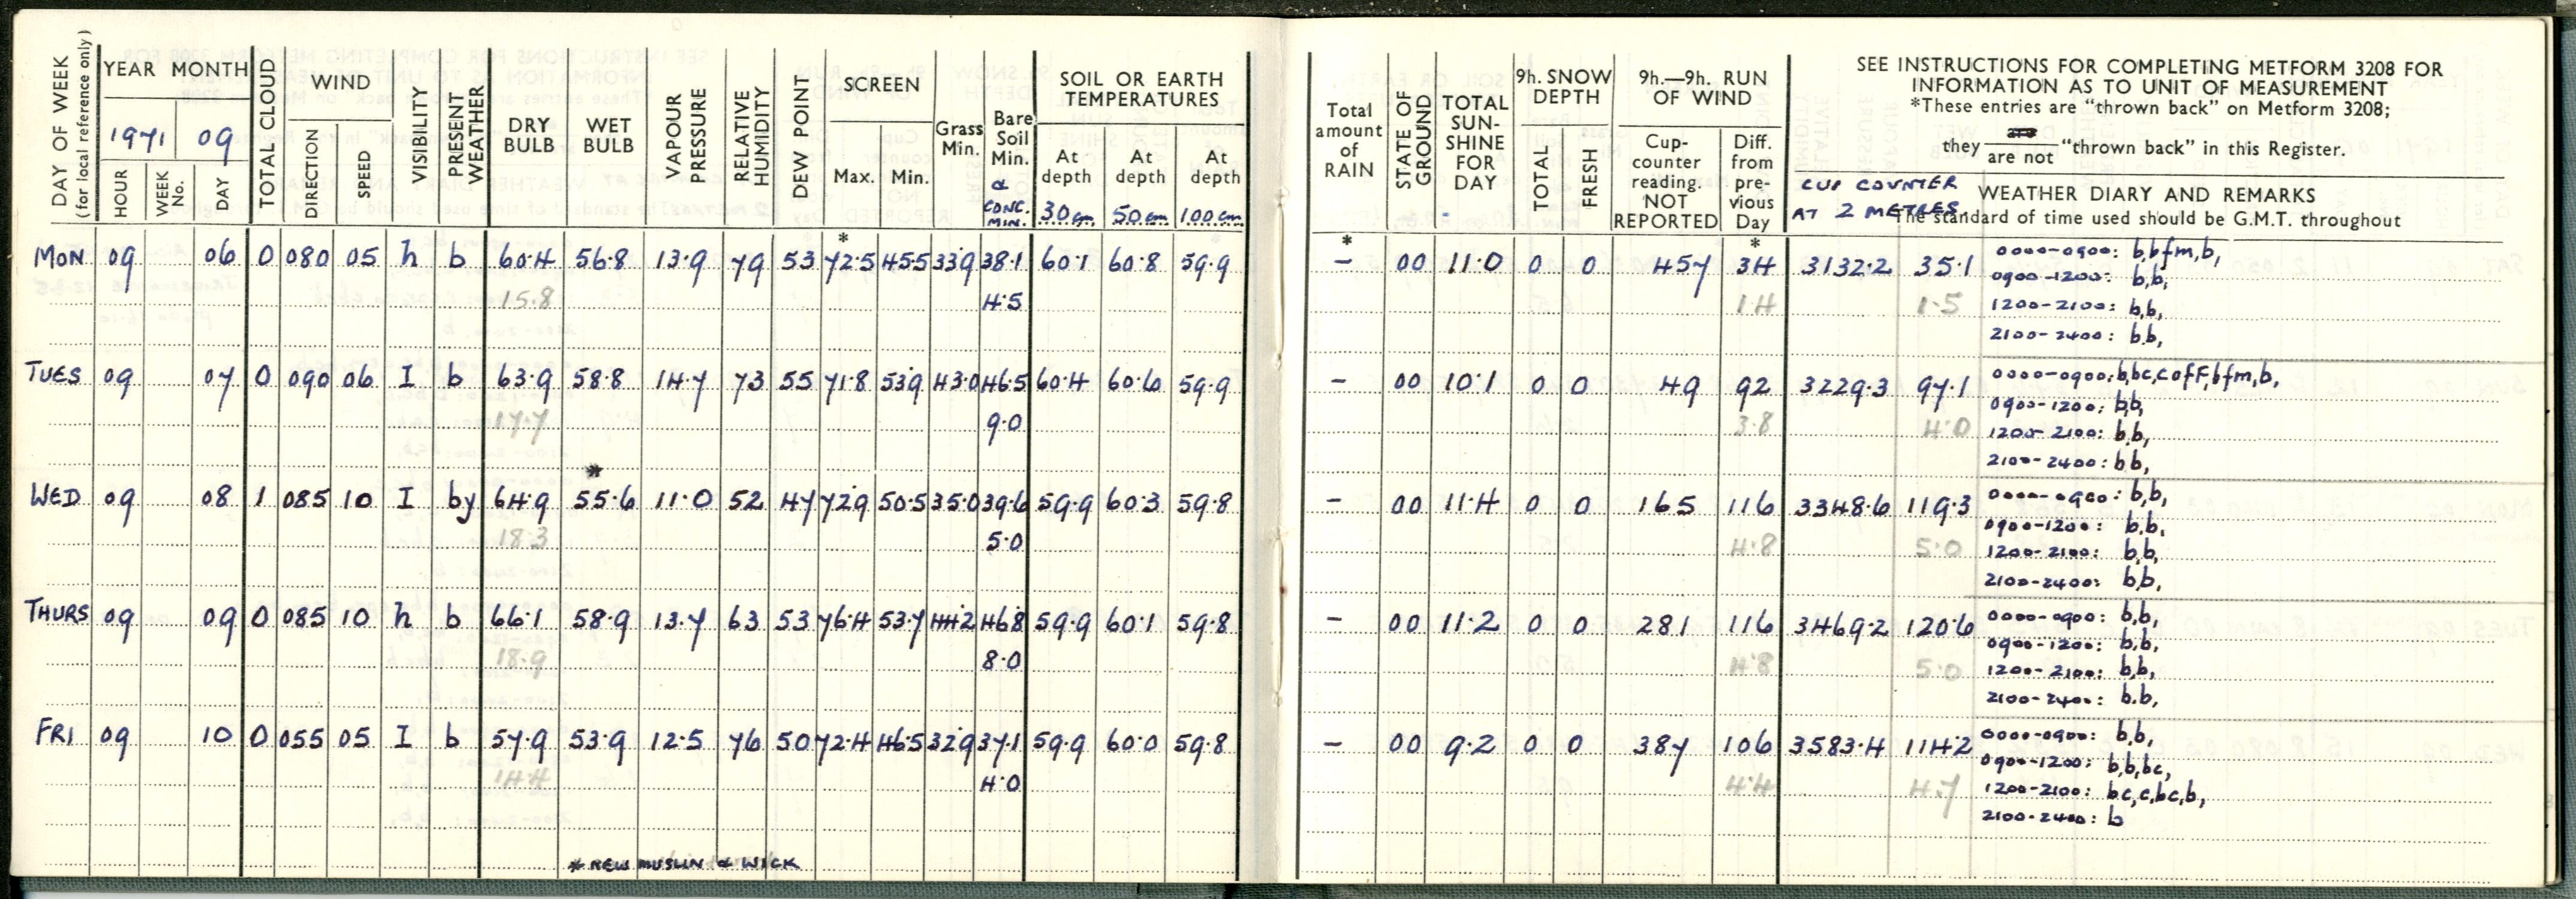 DAY OF WEEK
(for local reference only)
YEAR MONTH
1971 09
HOUR
WEEK No.
DAY
TOTAL CLOUD
WIND
DIRECTION
SPEED
VISIBILITY
PRESENT WEATHER
DRY BULB
WET BULB
VAPOUR PRESSURE
RELATIVE HUMIDITY
DEW POINT
SCREEN
Max. Min.
Grass Min.
Bare Soil Min.
& CONC. MIN.
SOIL OR EARTH TEMPERATURES
At depth 30 cm
At depth 50 cm
At depth 100 cm
Total amount of RAIN
STATE OF GROUND
TOTAL SUN-SHINE FOR DAY
9h. SNOW DEPTH
TOTAL
FRESH
9h.—9h. RUN OF WIND
Cup-counter reading. NOT REPORTED
Diff. from pre-vious Day
SEE INSTRUCTIONS FOR COMPLETING METFORM 3208 FOR
INFORMATION AS TO UNIT OF MEASUREMENT
*These entries are "thrown back" on Metform 3208;
they are / are not "thrown back" in this Register.
CUP COUNTER AT 2 METRES
WEATHER DIARY AND REMARKS
The standard of time used should be G.M.T. throughout
* * *
MON 09 06 0 080 05 h b 60.4 56.8 13.9 79 53 72.5 45.5 33.9 38.1 60.1 60.8 59.9 – 00 11.0 0 0 457 34 3132.2 35.1 0000-0900: b,bfm,b,
0900-1200: b,b,
15.8 4.5 1.4 1.5 1200-2100: b,b,
2100-2400: b,b,
TUES 09 07 0 090 06 I b 63.9 58.8 14.7 73 55 71.8 53.9 43.0 46.5 60.4 60.6 59.9 – 00 10.1 0 0 49 92 3229.3 97.1 0000-0900: b,bc,coff,bfm,b,
0900-1200: b,b,
17.7 9.0 3.8 4.0 1200-2100: b,b,
2100-2400: b,b,
*
WED 09 08 1 085 10 I by 64.9 55.6 11.0 52 47 72.9 50.5 35.0 39.6 59.9 60.3 59.8 – 00 11.4 0 0 165 116 3348.6 119.3 0000-0900: b,b,
0900-1200: b,b,
18.3 5.0 4.8 5.0 1200-2100: b,b,
2100-2400: b,b,
THURS 09 09 0 085 10 h b 66.1 58.9 13.7 63 53 76.4 53.7 44.2 46.8 59.9 60.1 59.8 – 00 11.2 0 0 281 116 3469.2 120.6 0000-0900: b,b,
0900-1200: b,b,
18.9 8.0 4.8 5.0 1200-2100: b,b,
2100-2400: b,b,
FRI 09 10 0 055 05 I b 57.9 53.9 12.5 76 50 72.4 46.5 32.9 37.1 59.9 60.0 59.8 – 00 9.2 0 0 387 106 3583.4 114.2 0000-0900: b,b,
0900-1200: b,b,bc,
14.4 4.0 4.4 4.7 1200-2100: bc,c,bc,b,
2100-2400: b
* NEW MUSLIN & WICK